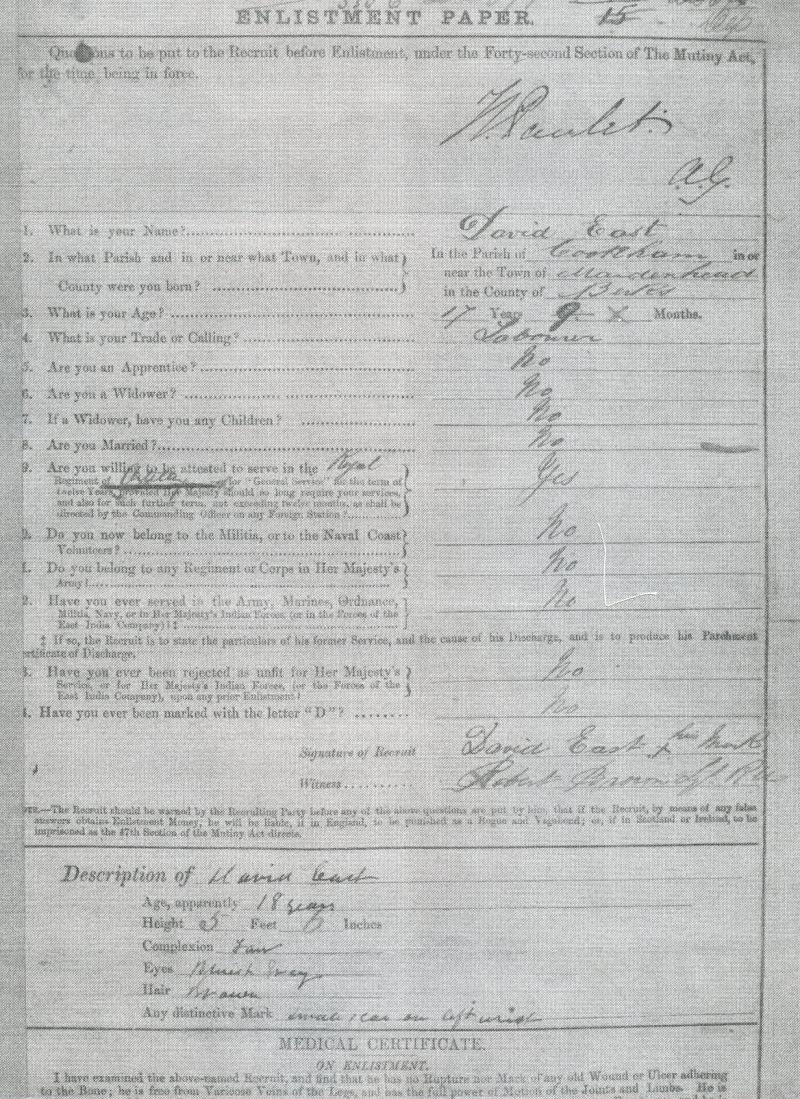 ENLISTMENT PAPER. 15
Questions to be put to the Recruit before Enlistment, under the Forty-second Section of The Mutiny Act,
for the time being in force.
A.G.
1. What is your Name? David East
2. In what Parish and in or near what Town, and in what In the Parish of Cookham in or
near the Town of Maidenhead
County were you born? in the County of Berks
3. What is your Age? 17 Years 9 Months.
4. What is your Trade or Calling? Labourer
5. Are you an Apprentice? No
6. Are you a Widower? No
7. If a Widower, have you any Children? No
8. Are you Married? No
9. Are you willing to be attested to serve in the Royal
Regiment of Artillery for "General Service" for the term of Yes
twelve Years, provided Her Majesty should so long require your services,
and also for such further term, not exceeding twelve months, as shall be
directed by the Commanding Officer on any Foreign Station?
0. Do you now belong to the Militia, or to the Naval Coast No
Volunteers?
1. Do you belong to any Regiment or Corps in Her Majesty's No
Army?
2. Have you ever served in the Army, Marines, Ordnance, No
Militia, Navy, or in Her Majesty's Indian Forces, (or in the Forces of the
East India Company)? ‡
‡ If so, the Recruit is to state the particulars of his former Service, and the cause of his Discharge, and is to produce his Parchment
ertificate of Discharge.
3. Have you ever been rejected as unfit for Her Majesty's No
Service, or for Her Majesty's Indian Forces, (or the Forces of the
East India Company), upon any prior Enlistment?
4. Have you ever been marked with the letter "D"? No
Signature of Recruit David East x his Mark
Witness Robert Brown Sgt
OTE.—The Recruit should be warned by the Recruiting Party before any of the above questions are put by him, that if the Recruit, by means of any false
answers obtains Enlistment Money, he will be liable, if in England, to be punished as a Rogue and Vagabond; or, if in Scotland or Ireland, to be
imprisoned as the 47th Section of the Mutiny Act directs.
Description of David East
Age, apparently 18 years
Height 5 Feet 6 Inches
Complexion Fair
Eyes Gray
Hair Brown
Any distinctive Mark small scar on left wrist
MEDICAL CERTIFICATE.
ON ENLISTMENT.
I have examined the above-named Recruit, and find that he has no Rupture nor Mark of any old Wound or Ulcer adhering
to the Bone; he is free from Varicose Veins of the Legs, and has the full power of Motion of the Joints and Limbs. He is